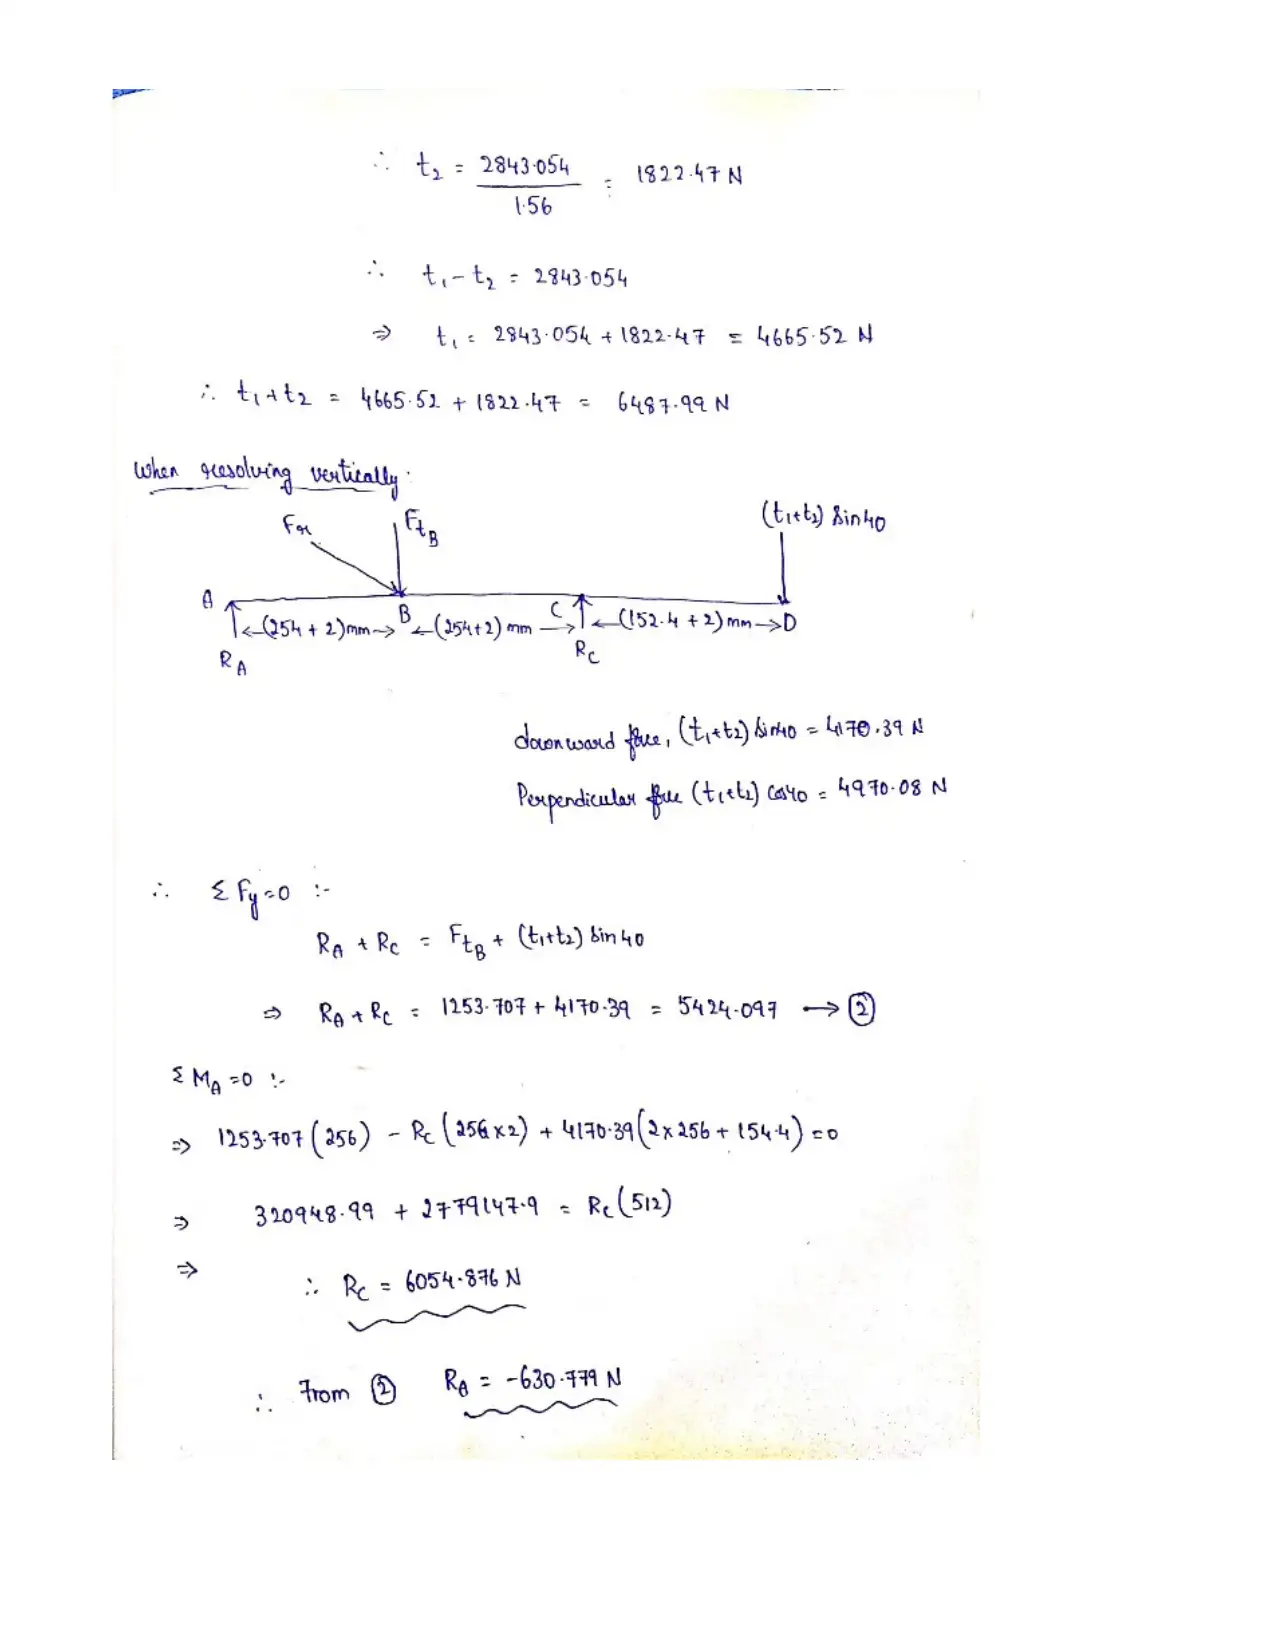 ∴ t₂ = 2843.054 / 1.56 = 1822.47 N
∴ t₁ - t₂ = 2843.054
⇒ t₁ = 2843.054 + 1822.47 = 4665.52 N
∴ t₁ + t₂ = 4665.52 + 1822.47 = 6487.99 N
When resolving vertically :
Fr FtB (t₁+t₂) Sin40
A B C D
(254 + 2)mm (254+2) mm (152.4 + 2) mm
RA RC
downward force, (t₁+t₂) Sin40 = 4170.39 N
Perpendicular force (t₁+t₂) Cos40 = 4970.08 N
∴ Σ Fy = 0 :-
RA + RC = FtB + (t₁+t₂) Sin40
⇒ RA + RC = 1253.707 + 4170.39 = 5424.097 → ②
Σ MA = 0 :-
⇒ 1253.707 (256) - RC (256x2) + 4170.39 (2x256 + 154.4) = 0
⇒ 320948.99 + 2779147.9 = RC (512)
⇒
∴ RC = 6054.876 N
∴ From ② RA = -630.779 N